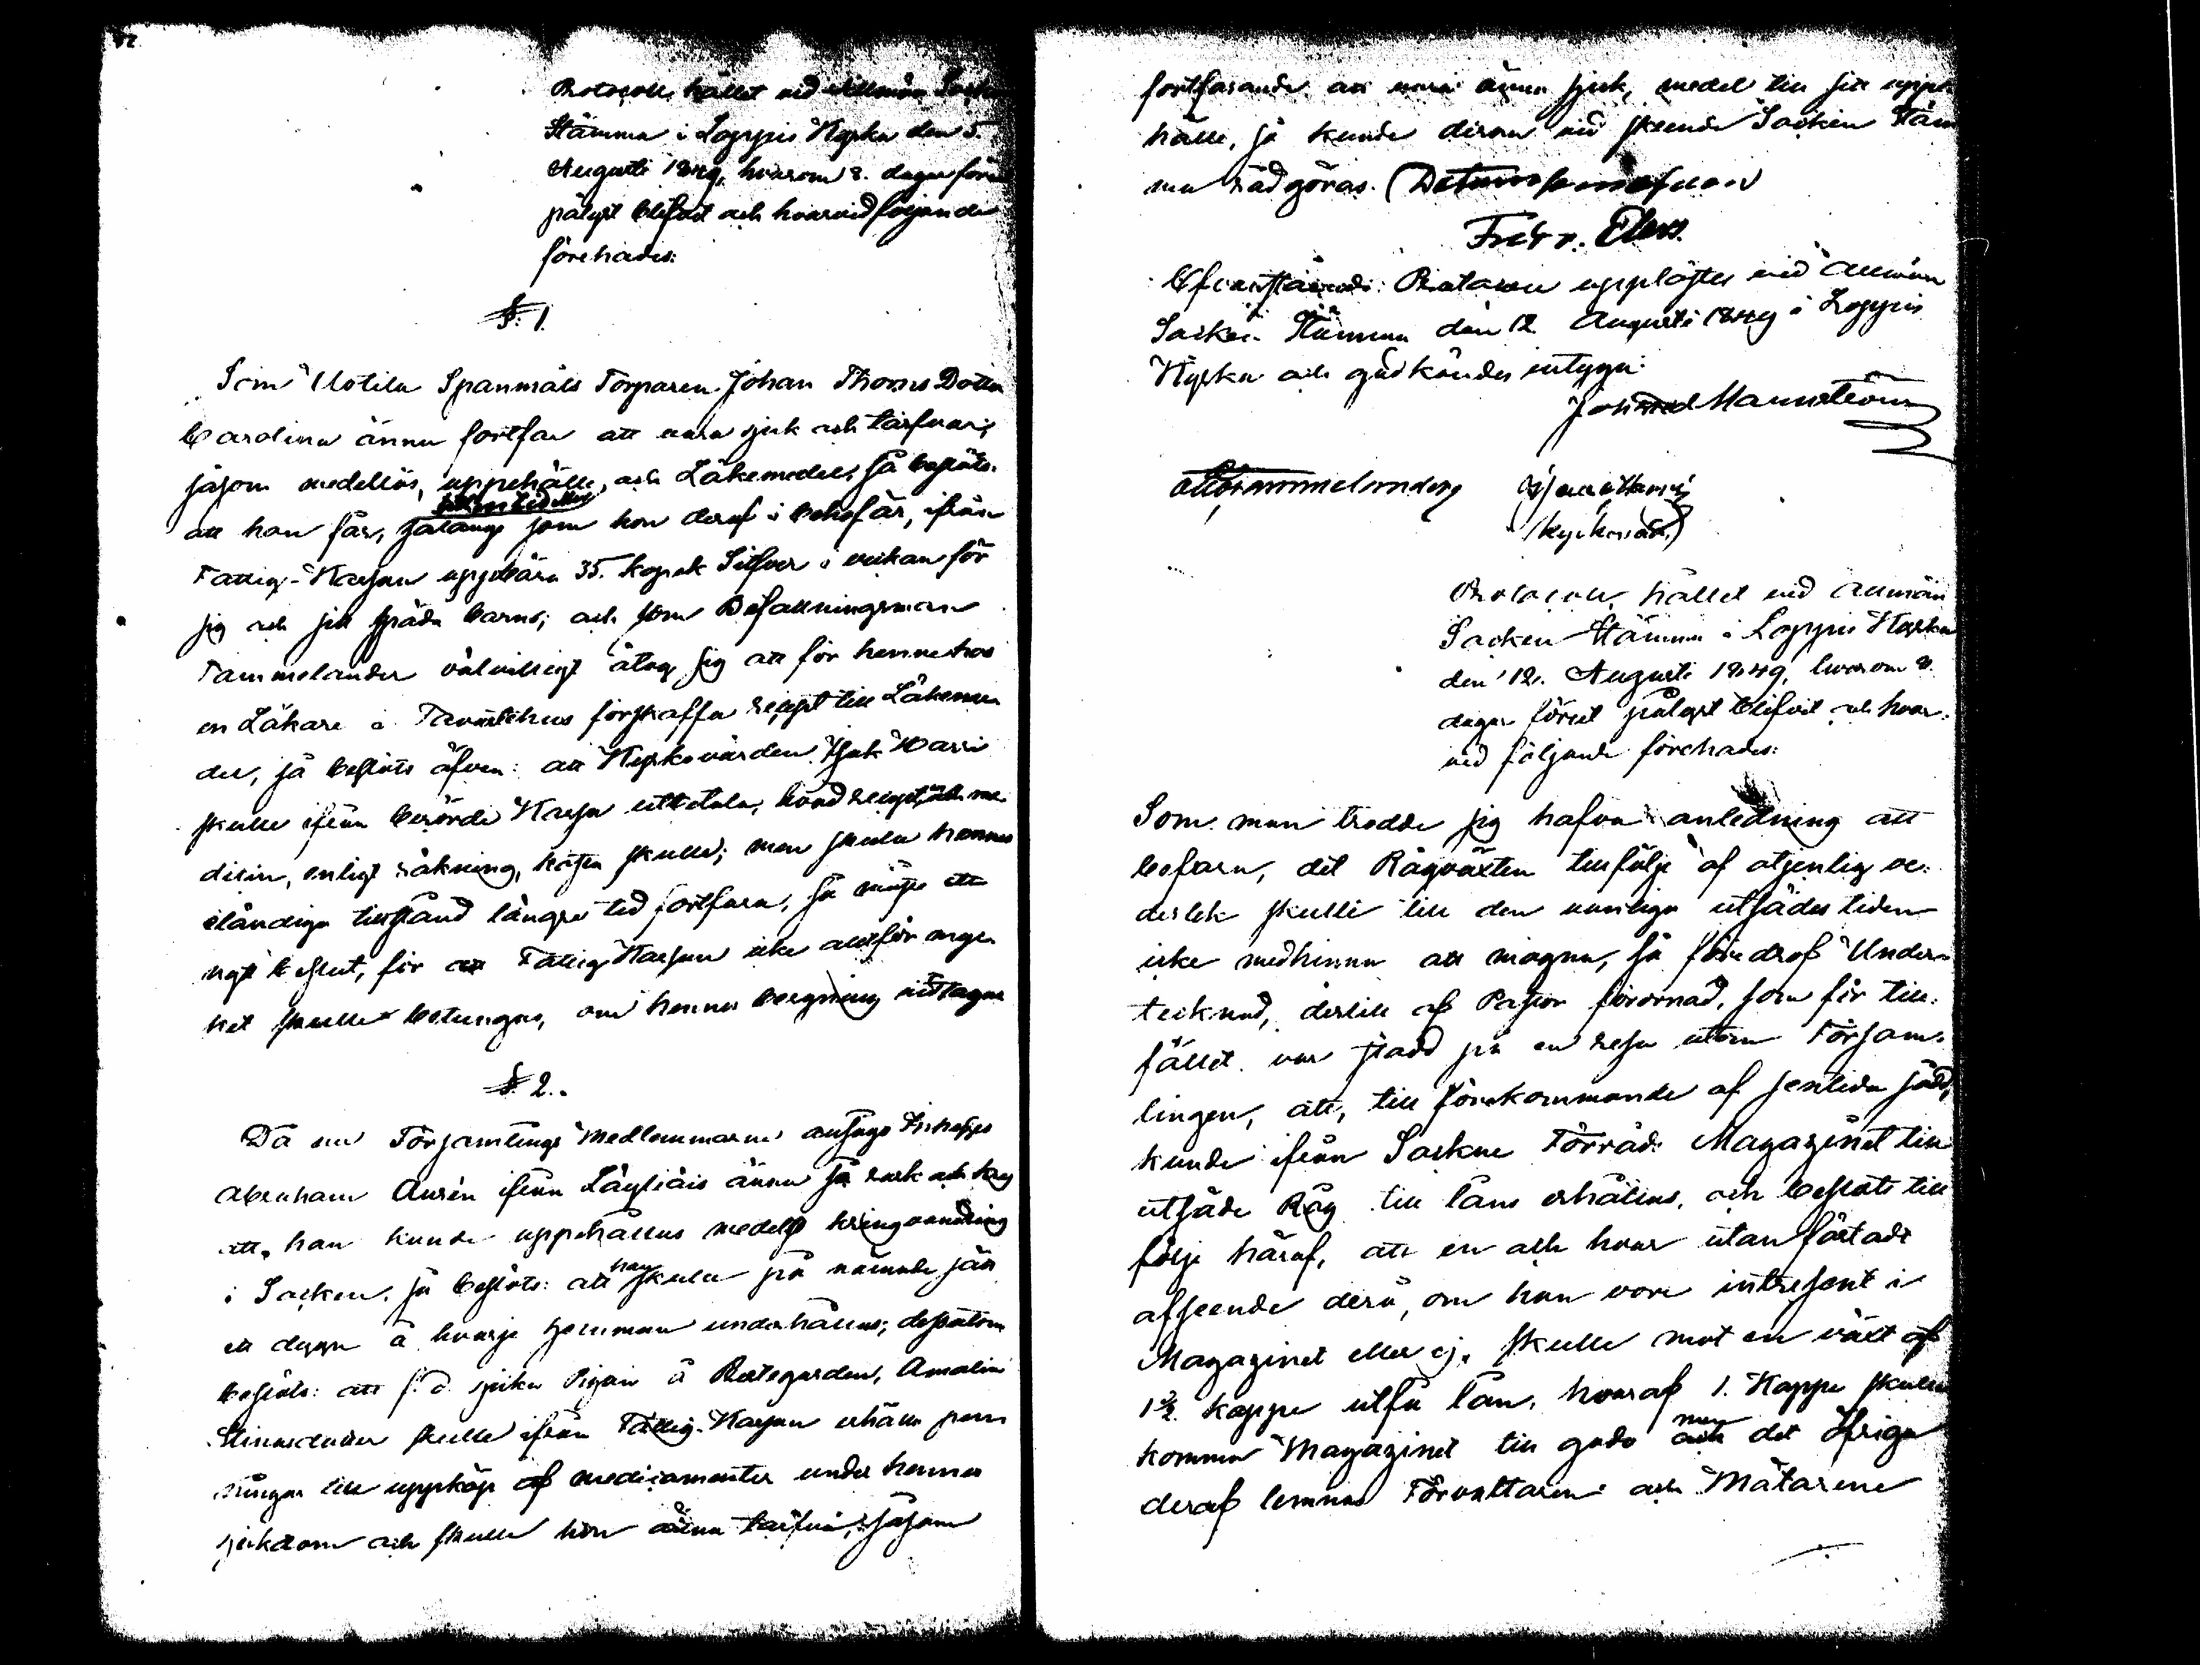 Protocoll, hållet vid allmän Socken
Stämma i Loppis Kyrka den 5.
Augusti 1849, hvarom 8. dagar förut
pålyst blifvit och hvarvid följande
förehades:
§. 1.
Som Uotila Spanmåls Torparen Johan Thoms Dotter
Carolina ännu fortfar att vara sjuk och tarfvar,
såsom medellös, uppehälle, och Läkemedel, så beslöts:
att hon får, så länge som hon deraf i behof är, ifrån
Fattig-Kassan uppbära 35. kopek Silfver i veckan för
sig och sitt späda barns; och som Befallningsman
Tammelander välvilligt åtog sig att för henne hos
en Läkare i Tavastehus förskaffa recept till Läkeme-
del, så beslöts äfven: att Kyrkovärden Isak Harri
skulle ifrån berörde Kassa utbetala, hvad recept, och me-
dicin, enligt räkning, kosta skulle; men skulle hennes
eländiga tillstånd längre tid fortfara, så måste ett
nytt beslut, för att Fattig Kassan icke alltför myc-
ket skulle betungas, om hennes bergning vidtagas
§. 2.
Då nu Församlings Medlemmarne ansågo Inhyses
Abraham Aurén ifrån Läyliäis ännu så rask och kry
att, han kunde uppehållas medelst kringvandring
i Socken, så beslöts: att han skulle på nämnde sätt
ett dygn å hvarje hemman underhållas; dessutom
beslöts: att f. d. sjuka Pigan å Prestegården, Amalia
skulle ifrån Fattig-Kassan erhålla pen-
ningar till uppköp af medicamenter under hennes
sjukdom och skulle hon ännu tarfva, såsom
fortfarande att vara ännu sjuk, medel till sitt uppe-
hälle, så kunde derom vid skeende Socken Stäm-
ma rådgöras. Datum som ofvan
Fredr. Elers.
Ofvanstående Protocoll upplästes vid allmän
Socken Stämma den 12 Augusti 1849 i Loppis
Kyrka och godkändes intyga:
Mannström
Kyrkovärd
Protocoll, hållet vid allmän
Socken Stämma i Loppis Kyrka
den 12. Augusti 1849, hvarom 8.
dagar förut pålyst blifvit och hvar-
vid följande förehades:
Som man trodde sig hafva anledning att
befara, det Rågväxten tillfölje af otjenlig vä-
derlek skulle till den vanliga utsädes tiden
icke medhinna att mogna, så föredrof Under-
tecknad, dertill af Pastor förordnad, som för till-
fället var stadd på en resa utom Försam-
lingen, att, till förekommande af sentida sådd,
kunde ifrån Sockne Förråds Magazinet till
utsäde Råg till låns erhållas, och beslöts till
följe häraf, att en och hvar utan fästadt
afseende derå, om han vore intressent i
Magazinet eller ej, skulle mot en växt af
1½ kappe utfå lån, hvaraf 1. Kappe skulle
komma Magazinet till godo men det öfriga
deraf lemnas Förvaltaren och Mätarene